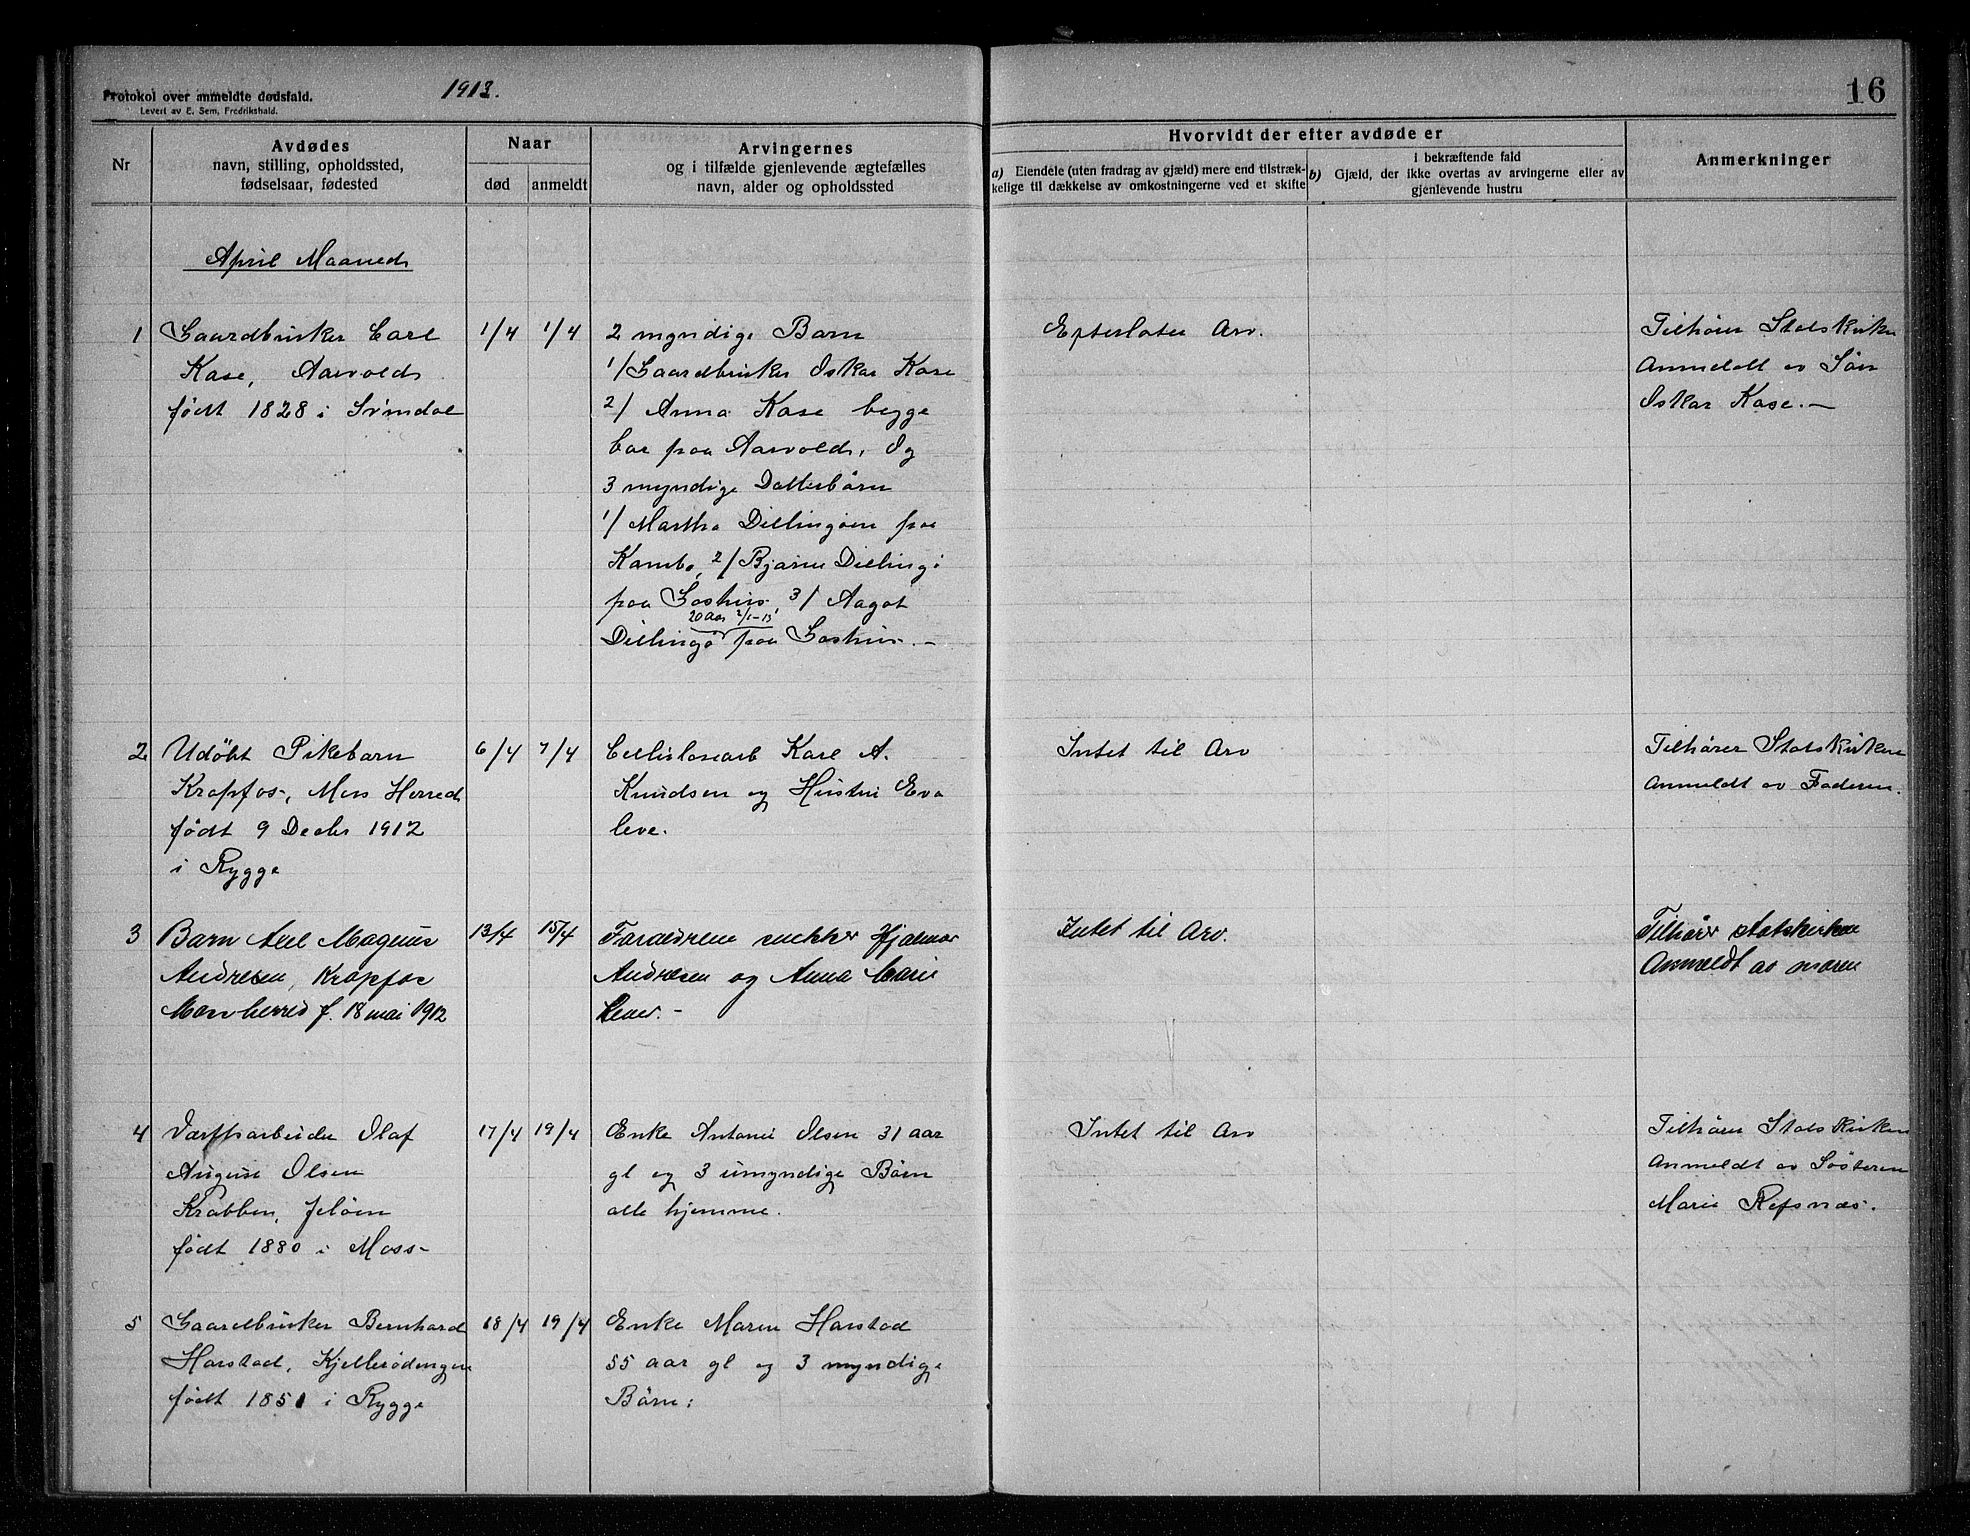 Protokol over anmeldte dødsfald.
Levert av E. Sem, Fredrikshald.
1913.
16
Nr
Avdødes
navn, stilling, opholdssted,
fødselsaar, fødested
Naar
død
anmeldt
Arvingernes
og i tilfælde gjenlevende ægtefælles
navn, alder og opholdssted
Hvorvidt der efter avdøde er
a) Eiendele (uten fradrag av gjæld) mere end tilstræk-
kelige til dækkelse av omkostningerne ved et skifte
I bekræftende fald
b) Gjæld, der ikke overtas av arvingerne eller av
gjenlevende hustru
Anmerkninger
April Maaned
1
Gaardbruker Carl
Kase, Aarvold
født 1828 i Svindal
1/4
1/4
2 myndige Barn
1/ Gaardbruker Oskar Kase
2/ Anna Kase begge
bor paa Aarvold. Og
3 myndige Datterbörn
1/ Martha Dillingöen paa
Kambo, 2/ Bjarne Dilling
paa Gashus, 3/ Aagot
20 aar 2/1-13
Dillingö paa Gashus.—
Efterlater Arv.
Tilhörer Statskirken
Anmeldt av Sön
Oskar Kase.—
2
Udöbt Pikebarn
Krapfos, Moss Herred
født 9 Decbr 1912
i Rygge
6/4
7/4
Cellulosearb Karl A.
Knudsen og Hustru Eva
leve.
Intet til Arv
Tilhörer Statskirken
Anmeldt av Faderen.
3
Barn Axel Magnus
Andresen, Krapfos
Moss herred f. 18 mai 1912
13/4
15/4
Forældrene snekker Hjalmar
Andresen og Anna Marie
lever.-
Intet til Arv.
Tilhörer statskirken
Anmeldt av moren
4
Værftsarbeider Olaf
August Olsen
Krabben, Jelöen
født 1880 i Moss-
17/4
19/4
Enke Antonie Olsen 31 aar
gl og 3 umyndige Börn
alle hjemme.
Intet til Arv
Tilhörer Statskirken
Anmeldt av Sösteren
Marie Refsnæs.
5
Gaardbruker Bernhard
Harstad, Kjellerödengen
født 1851 i Rygge
18/4
19/4
Enke Maren Harstad
55 aar gl og 3 myndige
Börn: